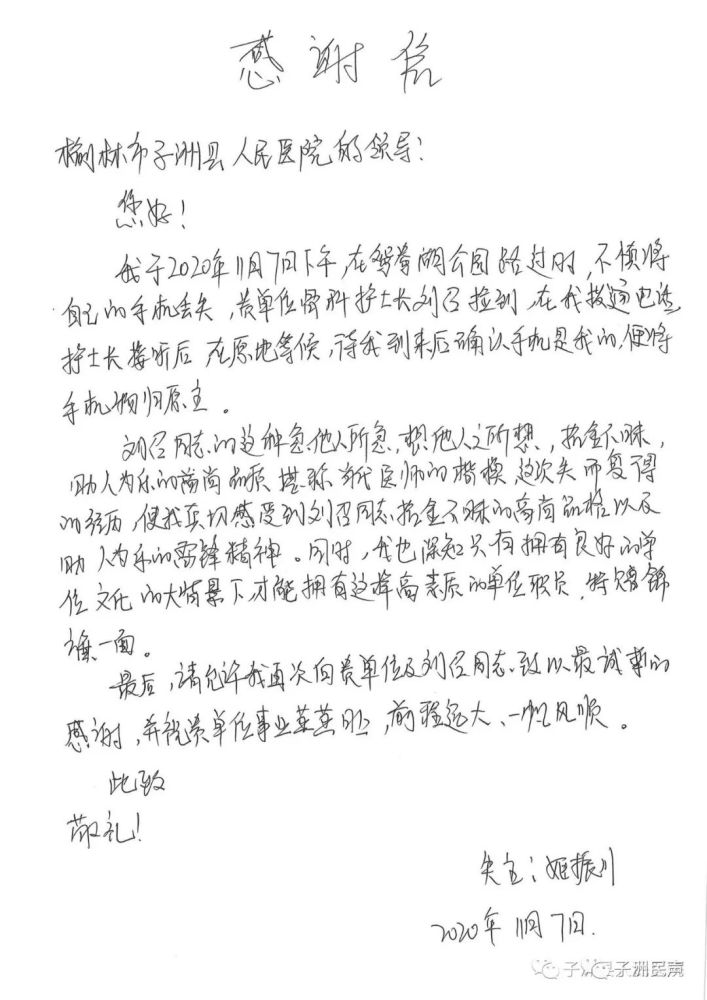 感谢信
榆林市子洲县人民医院的领导:
您好!
我于2020年11月7日下午,在鸳鸯湖公园路过时,不慎将
自己的手机丢失,贵单位骨科护士长刘召捡到,在我拨通电话,
护士长接听后在原地等候,待我到来后确认手机是我的,便将
手机物归原主。
刘召同志的这种急他人所急,想他人之所想,拾金不昧,
助人为乐的高尚品质堪称当代医师的楷模,这次失而复得
的经历,使我真切感受到刘召同志拾金不昧的高尚品格以及
助人为乐的雷锋精神。同时,我也深知只有拥有良好的单
位文化的大背景下才能拥有这样高素质的单位职员,特赠锦
旗一面。
最后,请允许我再次向贵单位及刘召同志致以最诚挚的
感谢,并祝贵单位事业蒸蒸日上,前程远大、一帆风顺。
此致
敬礼!
失主:姬振川
2020年11月7日.
子洲民声